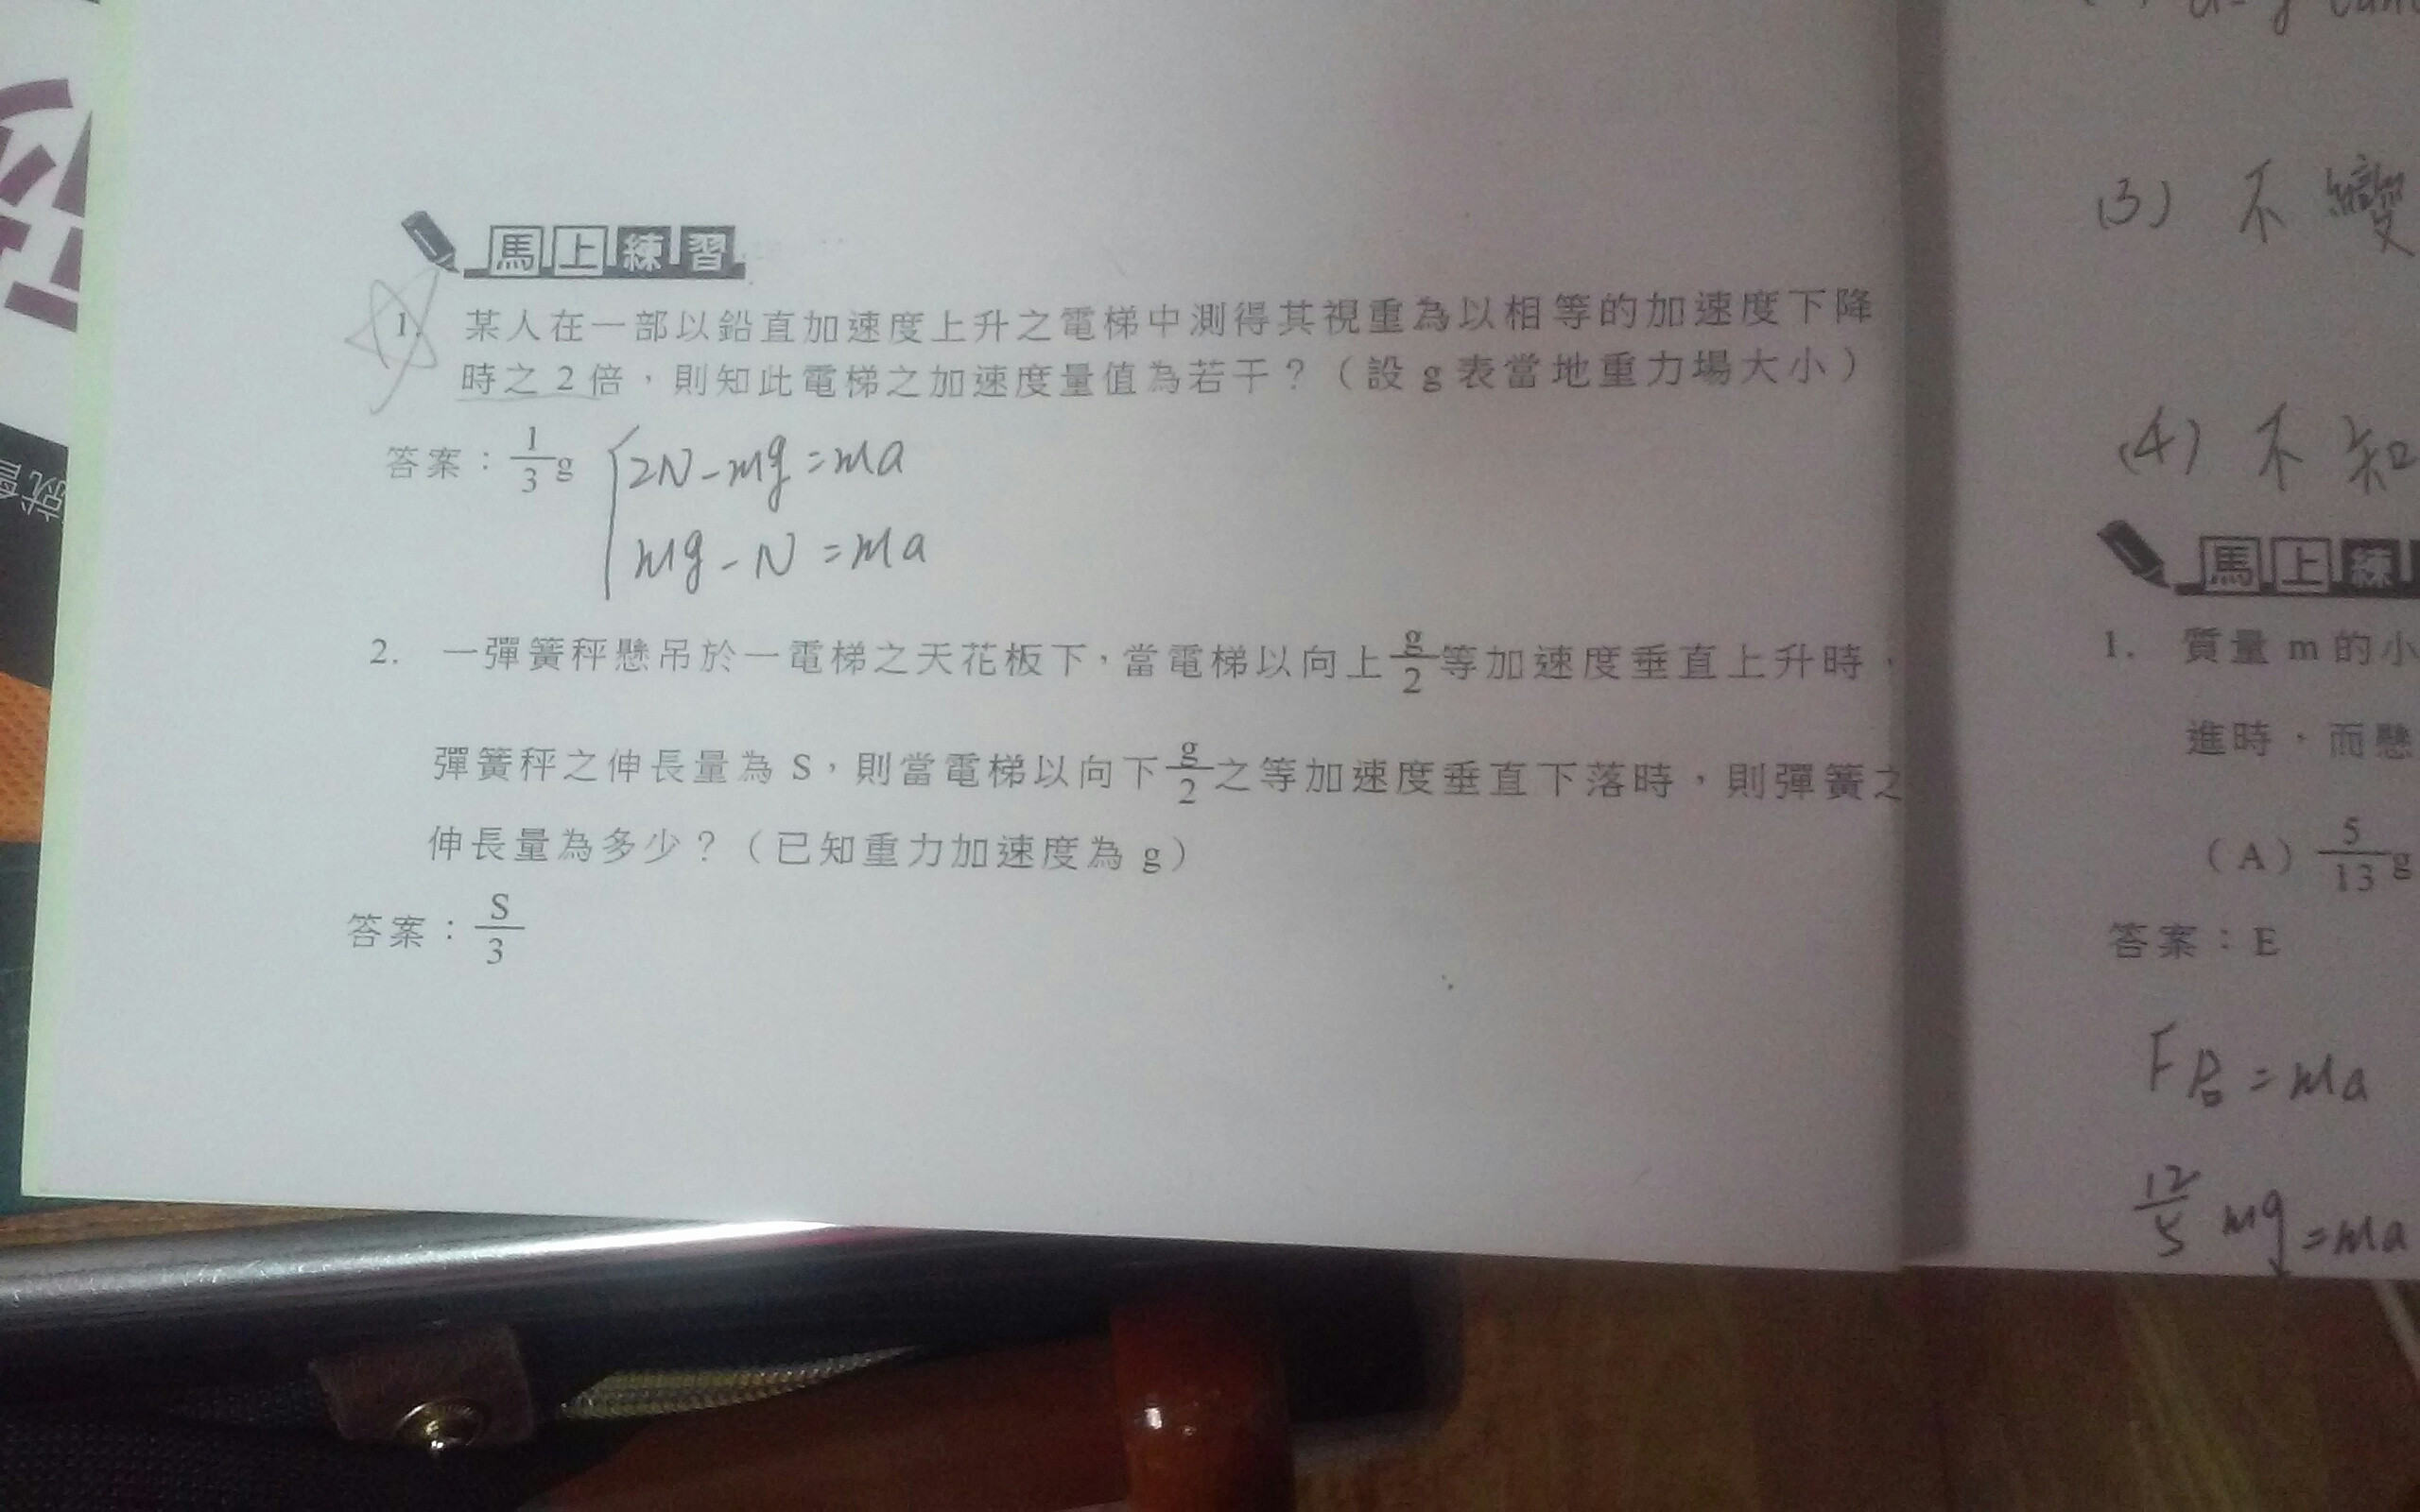 馬上練習
1. 某人在一部以鉛直加速度上升之電梯中測得其視重為以相等的加速度下降
時之 2 倍，則知此電梯之加速度量值為若干？（設 g 表當地重力場大小）
答案：1/3 g
2N-mg=ma
mg-N=ma
2. 一彈簧秤懸吊於一電梯之天花板下，當電梯以向上 g/2 等加速度垂直上升時，
彈簧秤之伸長量為 S，則當電梯以向下 g/2 之等加速度垂直下落時，則彈簧之
伸長量為多少？（已知重力加速度為 g）
答案：S/3
(3) 不變
(4) 不知
馬上練
1. 質量 m 的小
進時，而懸
（A）5/13 g
答案：E
F合=ma
12/5 mg=ma